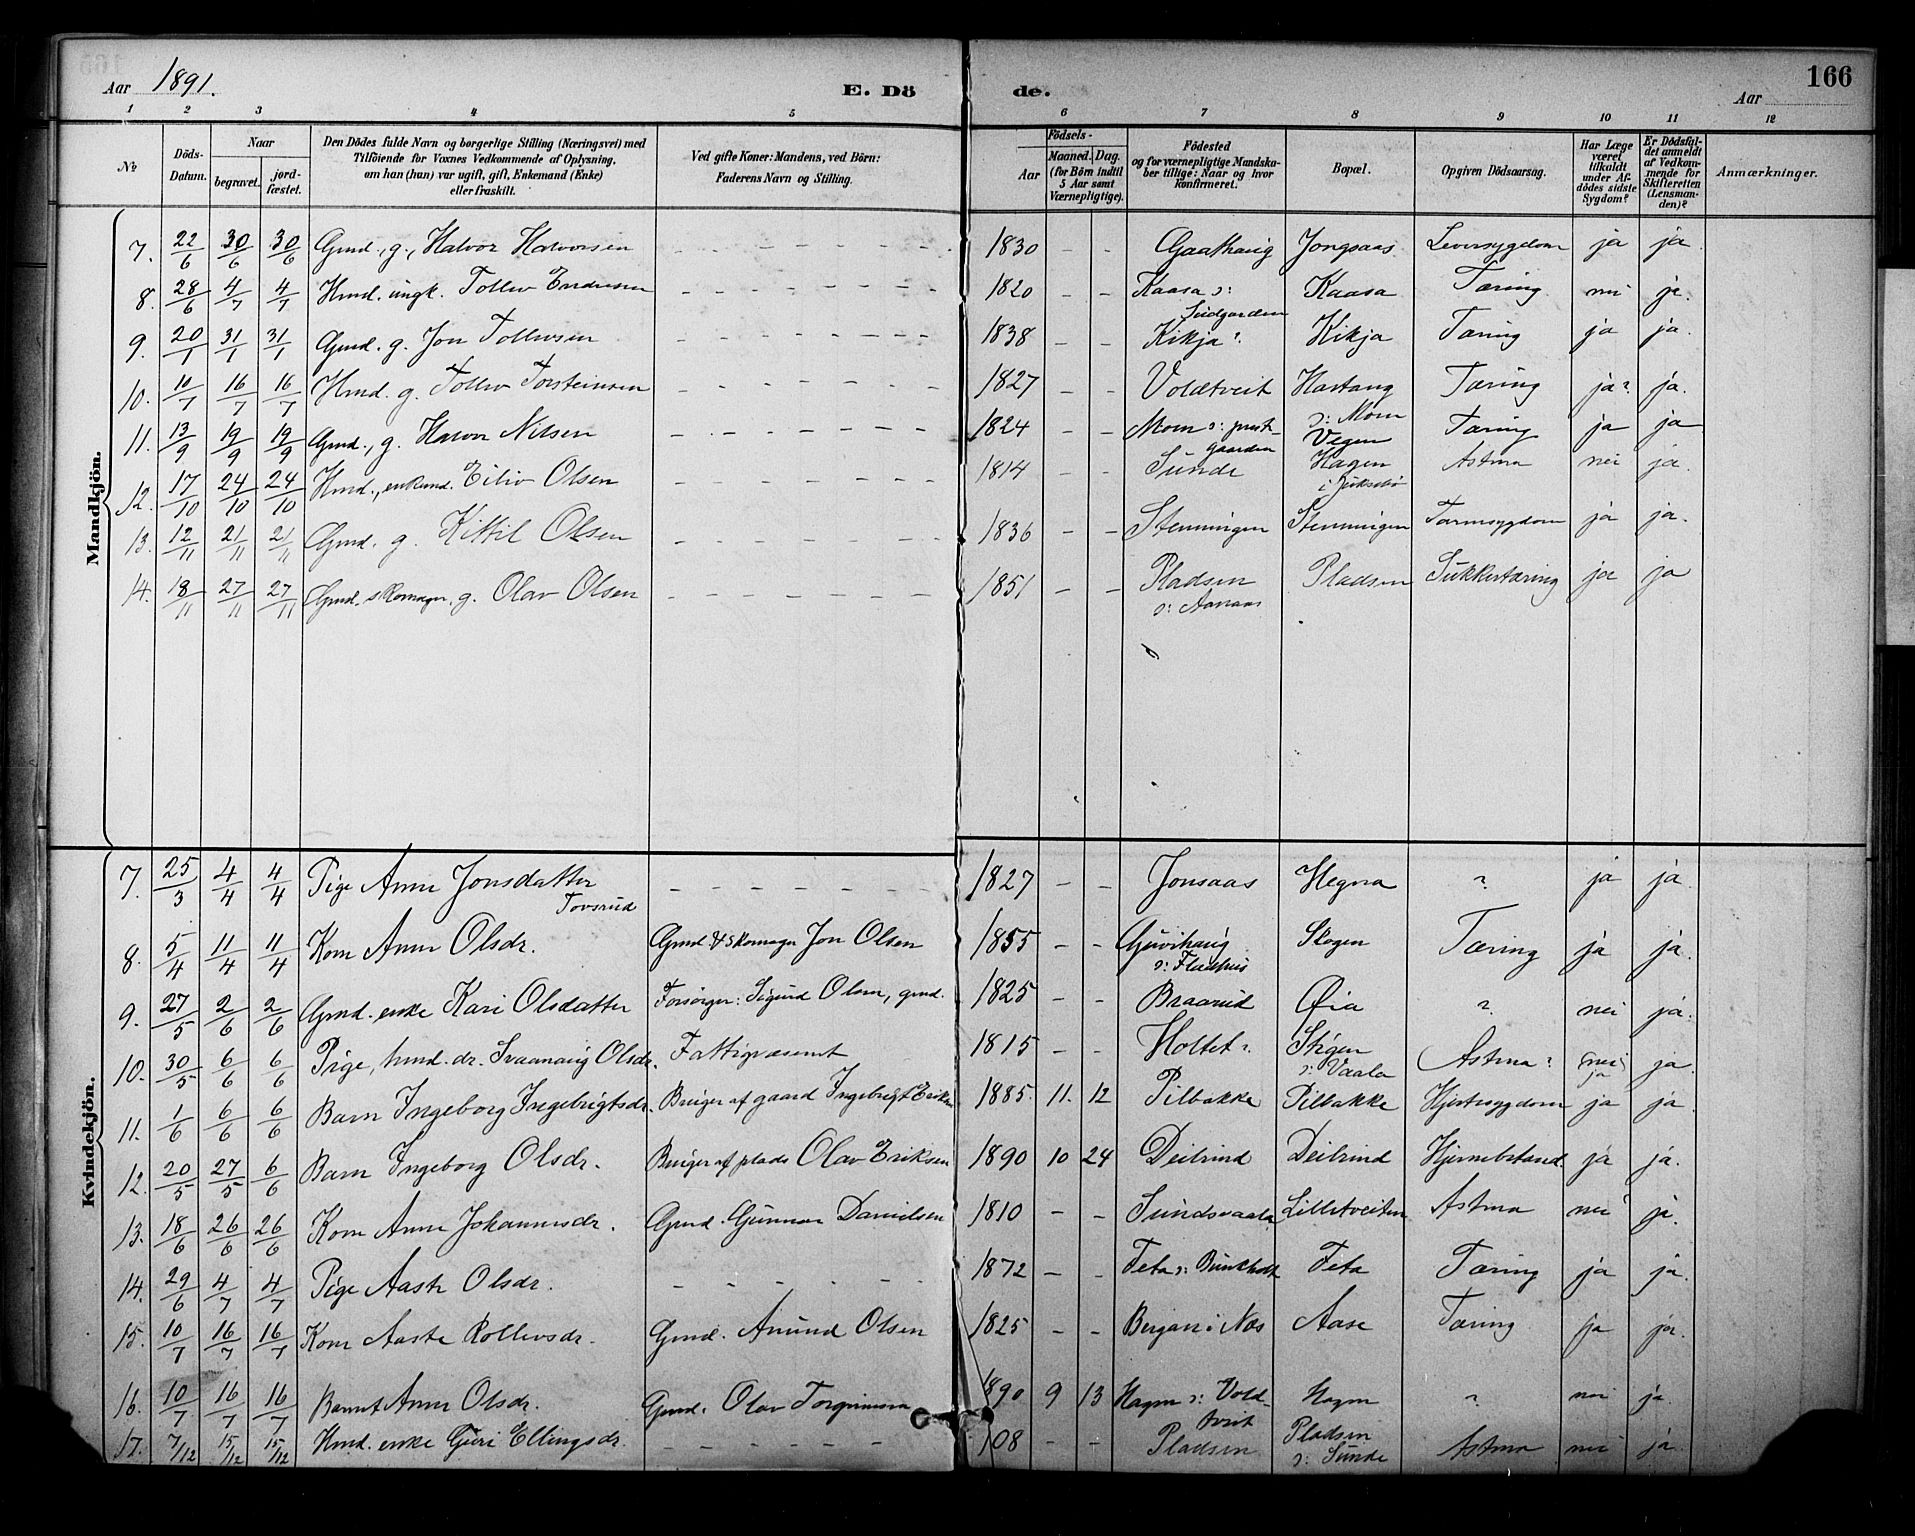 Aar 1891. E. Dö de. Aar 166
1 2 3 4 5 6 7 8 9 10 11 12
№ Döds-Datum. Naar begravet. jordfæstet. Den Dödes fulde Navn og borgerlige Stilling (Næringsvei) med Tilföiende for Voxnes Vedkommende af Oplysning, om han (hun) var ugift, gift, Enkemand (Enke) eller fraskilt. Ved gifte Koner: Mandens, ved Börn: Faderens Navn og Stilling. Födsels- Aar Maaned. Dag. (for Börn indtil 5 Aar samt Værnepligtige). Födested og for værnepligtige Mandskaber tillige: Naar og hvor konfirmeret. Bopæl. Opgiven Dödsaarsag. Har Læge været tilkaldt under Afdödes sidste Sygdom? Er Dödsfaldet anmeldt af Vedkommende for Skifteretten (Lensmanden)? Anmærkninger.
Mandkjön.
7. 22/6 30/6 30/6 Gmd., g., Halvor Halvorsen - - - - - - 1830 - - Gaathaug Jongsaas Leversygdom ja ja
8. 28/6 4/7 4/7 Hmd. ungk. Tollev Endresen - - - - - - 1820 - - Kaasa ɔ: Sudgarden Kaasa Tæring nei ja.
9. 20/1 31/1 31/1 Gmd. g. Jon Tollevsen - - - - - - 1838 - - Kikja ? Kikja Tæring ja ja.
10. 10/7 16/7 16/7 Hmd. g. Tollev Torsteinsen - - - - - - 1827 - - Voldtveit Hastang ɔ: Moen Tæring ja? ja.
11. 13/9 19/9 19/9 Gmd., g. Halvor Nilsen - - - - - - 1824 - - Moen ɔ: prest-gaarden Vegen Tæring ja ja
12. 17/10 24/10 24/10 Hmd., enkemd. Eiliv Olsen - - - - - - 1814 - - Sunde Hagen i Astma nei ja.
13. 12/11 21/11 21/11 Gmd. g. Kittil Olsen - - - - - - 1836 - - Stenningen Stenningen Tarmsygdom ja ja.
14. 18/11 27/11 27/11 Gmd. skomager. g. Olav Olsen - - - - - - 1851 - - Pladsen ɔ: Aanaas Pladsen Sukkertæring ja ja
Kvindekjön.
7. 25/3 4/4 4/4 Pige Anne Jonsdatter Tovsrud - - - - - - 1827 - - Jonsaas Hegna ? ja ja.
8. 5/4 11/4 11/4 Kone Anne Olsdr. Gmd & skomager Jon Olsen 1855 - - Gjuvihaug ɔ: Fladhus Skogen Tæring ja ja.
9. 27/5 2/6 2/6 Gmd. enke Kari Olsdatter Forsörger: Sigurd Olsen, gmd. 1825 - - Braarud Øia ? nei ja.
10. 30/5 6/6 6/6 Pige, hmd. dr. Svaanaug Olsdr. Fattigvæsenet 1815 - - Holtet ? Stigen ɔ: Vaala Astma ? nei ja ja.
11. 1/6 6/6 6/6 Barn Ingeborg Ingebrigtsdr. Bruger af gaard Ingebrigt Eriksen 1885. 11. 12 Pilbakke Pilbakke Hjertesygdom ja ja.
12. 20/5 27/5 6/6 Barn Ingeborg Olsdr. Bruger af plads Olav Eriksen 1890 10 24 Deilrind Deilrind Hjernebetænd. ja ja.
13. 18/6 26/6 26/6 Kone Anne Johannesdr. Gmd. Gunnar Danielsen 1810 - - Sundsvaala Lilletveiten Astma nei ja.
14. 29/6 4/7 4/7 Pige Aaste Olsdr. - - - - - - 1872 - - Feta ɔ: Bunkholt Feta Tæring ja ja.
15. 10/7 16/7 16/7 Kone Aaste Rollevsdr. Gmd. Amund Olsen 1825 - - Bergan i Næs Aase Tæring ja ja.
16. 10/7 16/7 16/7 Barnet Anne Olsdr. Gmd. Olav Torgrimsen 1890 9 13 Hagen ɔ: Voldtveit Hagen ? nei ja
17. 7/12 15/12 15/12 Hmd. enke Guri Ellingsdr. - - - - - - 108 - - Pladsen Pladsen ɔ: Sunde Astma nei ja.